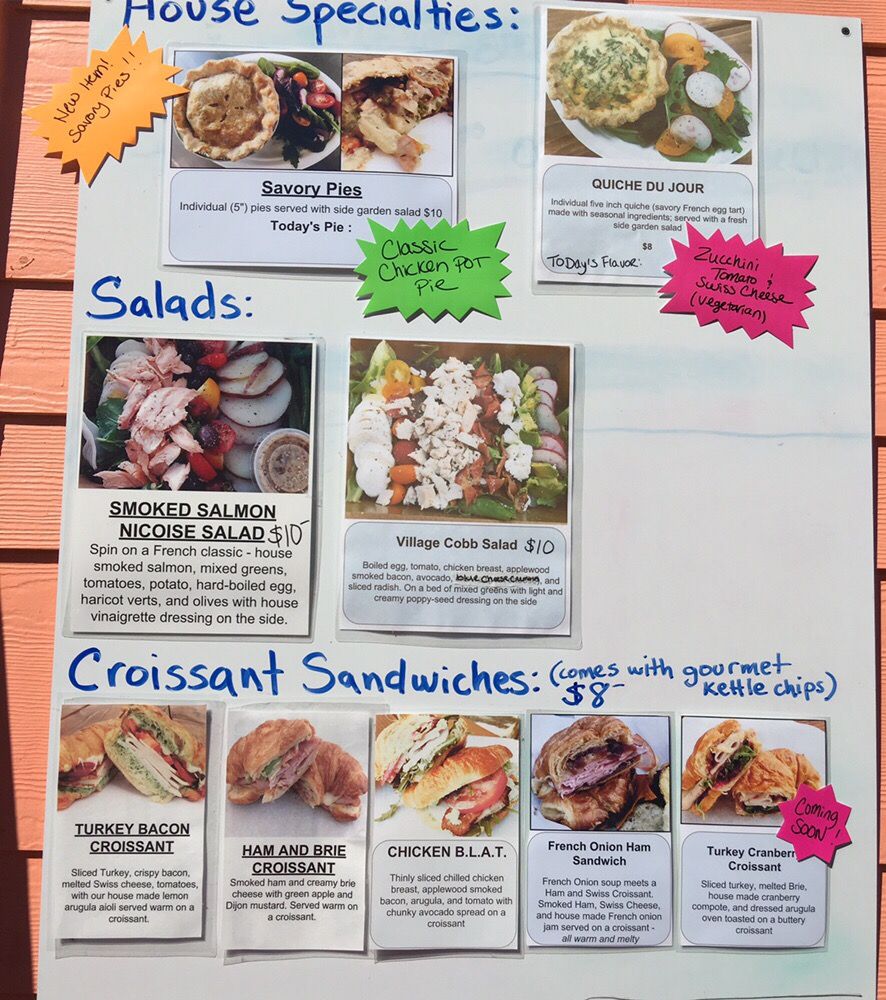 House Specialties:
New Item!
Savory Pies!!
Savory Pies
Individual (5") pies served with side garden salad $10
Today's Pie :
Classic
Chicken POT
Pie
QUICHE DU JOUR
Individual five inch quiche (savory French egg tart)
made with seasonal ingredients; served with a fresh
side garden salad
$8
ToDay's Flavor:
Zucchini
Tomato &
Swiss Cheese
(vegetarian)
Salads:
SMOKED SALMON
NICOISE SALAD $10-
Spin on a French classic - house
smoked salmon, mixed greens,
tomatoes, potato, hard-boiled egg,
haricot verts, and olives with house
vinaigrette dressing on the side.
Village Cobb Salad $10
Boiled egg, tomato, chicken breast, applewood
smoked bacon, avocado, blue cheese, and
sliced radish. On a bed of mixed greens with light and
creamy poppy-seed dressing on the side
Croissant Sandwiches: (comes with gourmet
$8- kettle chips)
TURKEY BACON
CROISSANT
Sliced Turkey, crispy bacon,
melted Swiss cheese, tomatoes,
with our house made lemon
arugula aioli served warm on a
croissant.
HAM AND BRIE
CROISSANT
Smoked ham and creamy brie
cheese with green apple and
Dijon mustard. Served warm on
a croissant.
CHICKEN B.L.A.T.
Thinly sliced chilled chicken
breast, applewood smoked
bacon, arugula, and tomato with
chunky avocado spread on a
croissant
French Onion Ham
Sandwich
French Onion soup meets a
Ham and Swiss Croissant.
Smoked Ham, Swiss Cheese,
and house made French onion
jam served on a croissant -
all warm and melty
Coming
Soon!
Turkey Cranberr
Croissant
Sliced turkey, melted Brie,
house made cranberry
compote, and dressed arugula
oven toasted on a buttery
croissant